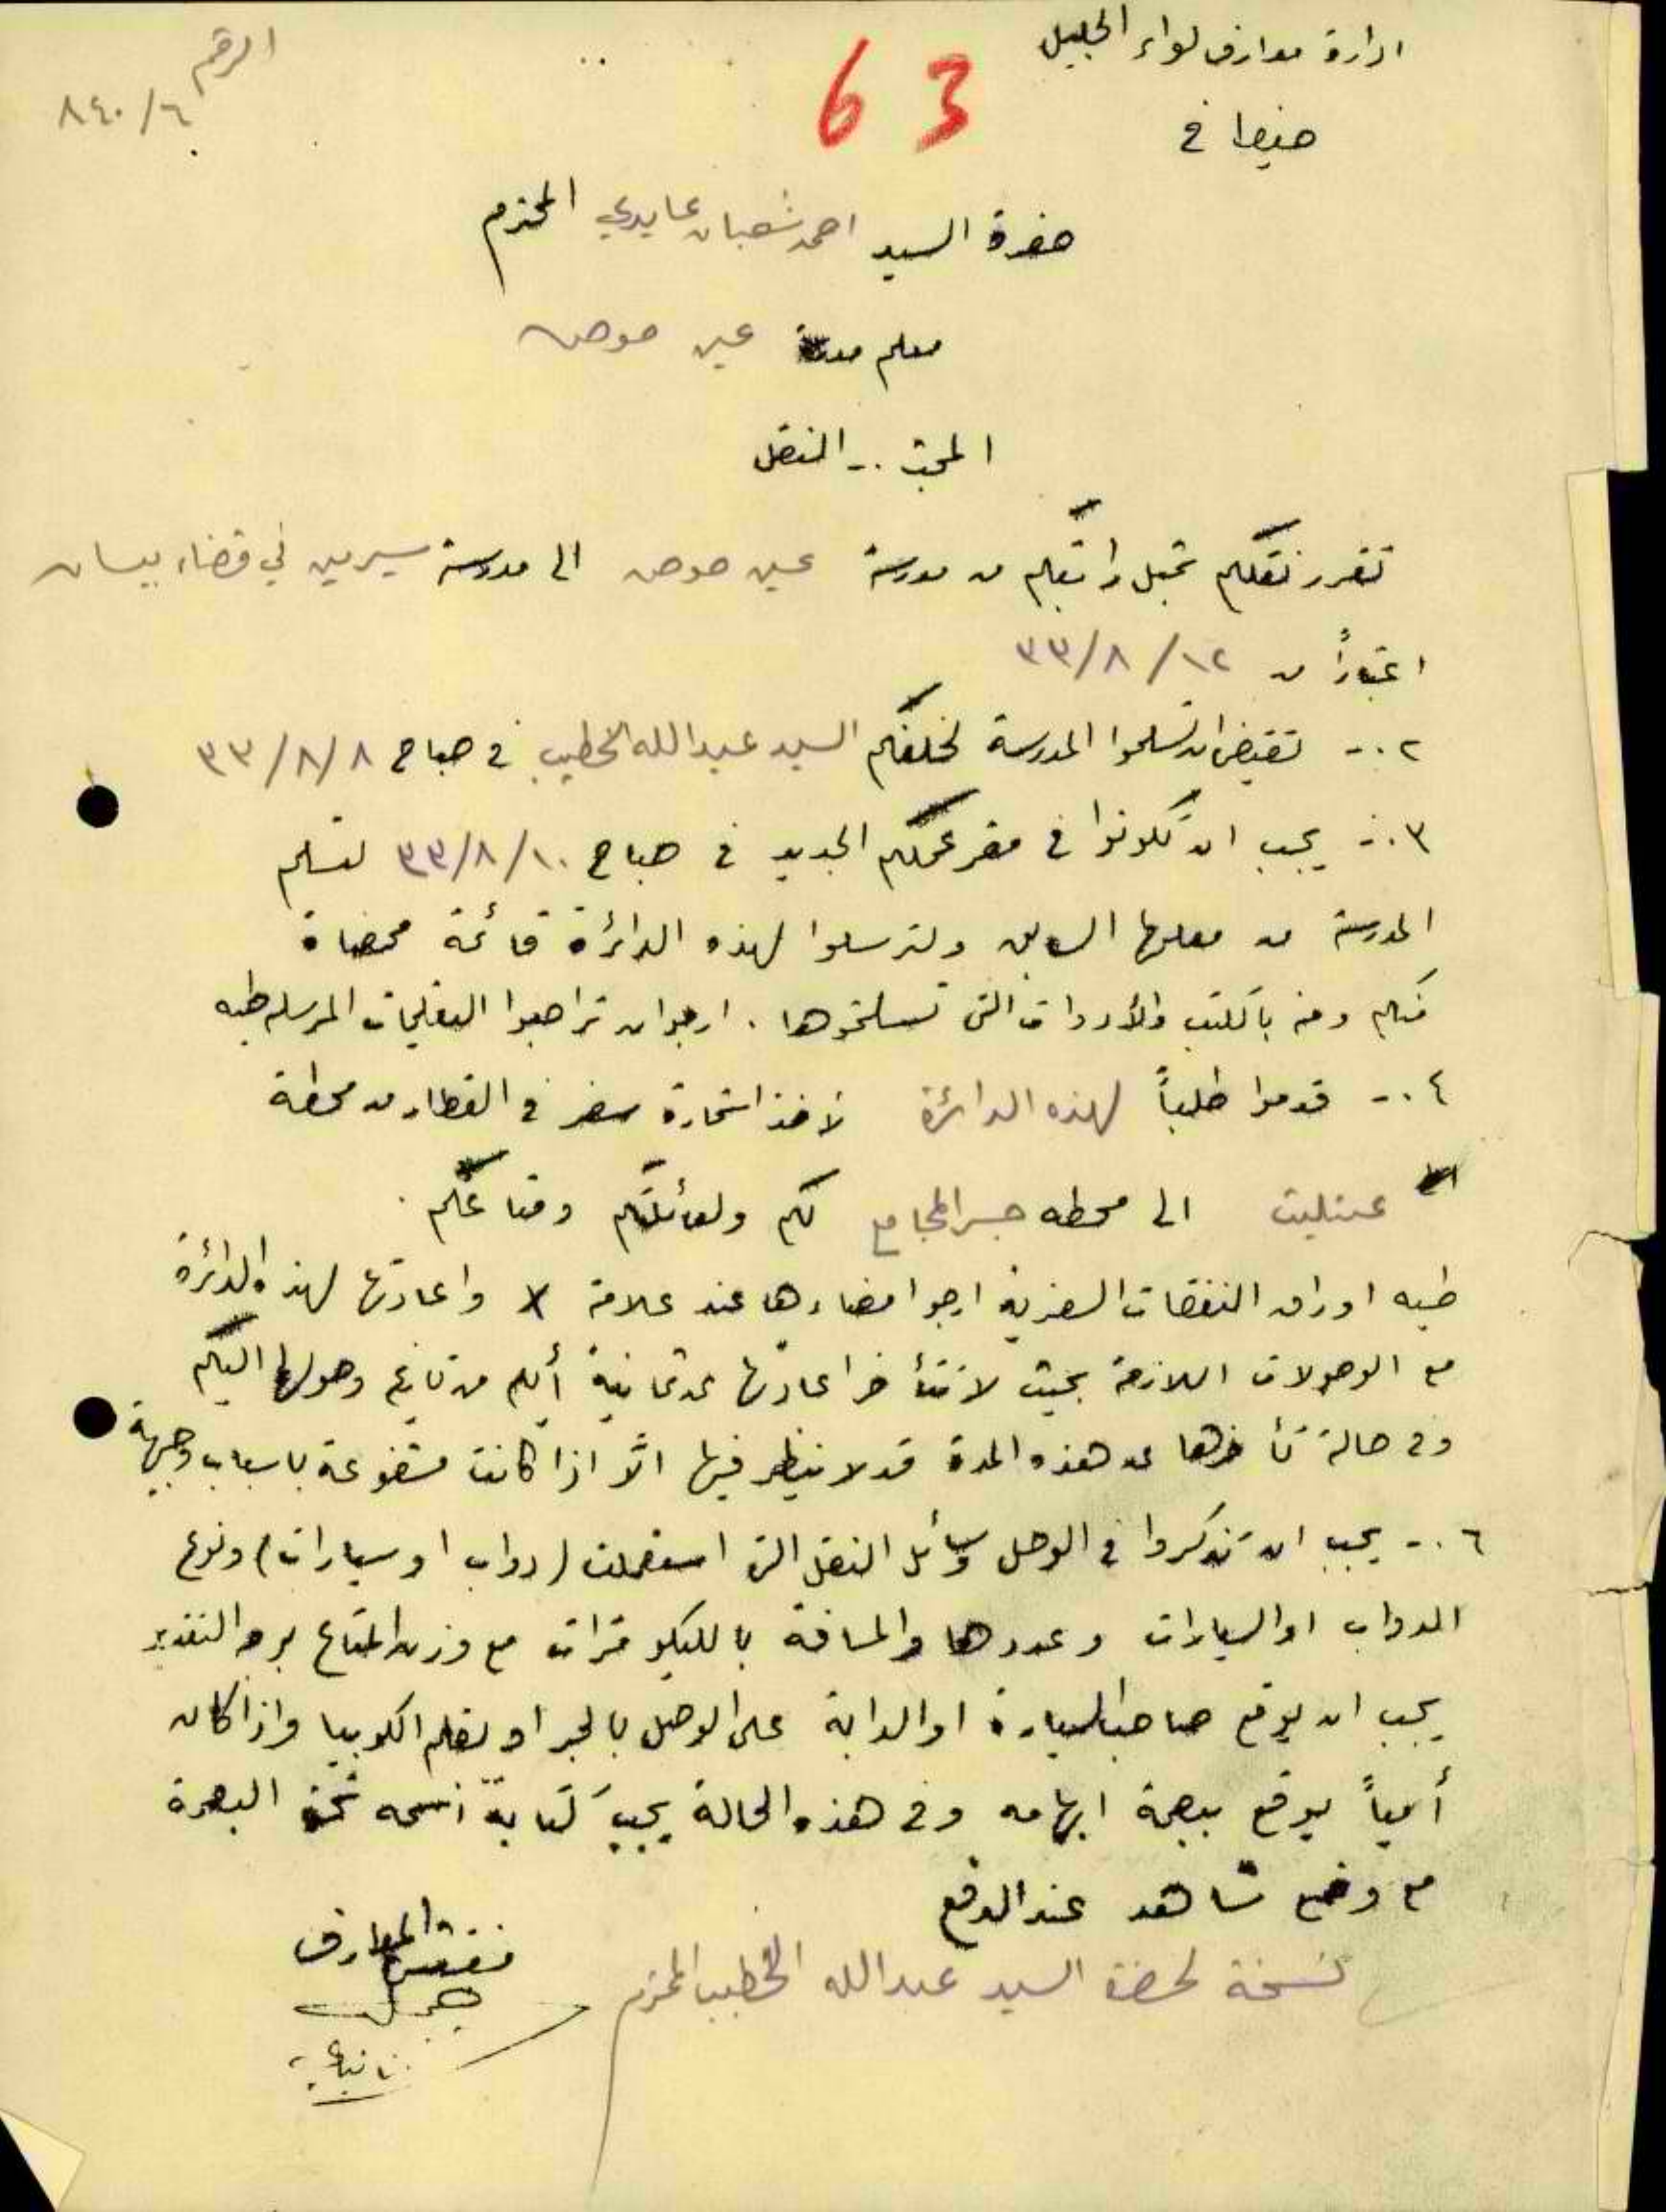 ادارة معارف لواء الجليل
الرقم
٨٤٠/٦
63
حيفا في
حضرة السيد احمد شعبان عايدي المحترم
معلم مدرسة عين حوض
المبحث .- النقل
تقرر نقلكم من مدرسة عين حوض الى مدرسة سيرين في قضاء بيسان
اعتباراً من ١٢/٨/٣٣
٢.- تقتضي ان تسلموا المدرسة لخلفكم السيد عبدالله الخطيب في صباح ٨/٨/٣٣
٣.- يجب ان تكونوا في مقر عملكم الجديد في صباح ١٠/٨/٣٣ لتسلم
المدرسة من معلمها السابق ولترسلوا لهذه الدائرة قائمة ممضاة
منكم ومنه بالكتب والأدوات التي تسلمتموها . ارجو ان تراجعوا التعليمات المرسلة طيه
٤.- قدموا طلباً لهذه الدائرة لأخذ استمارة سفر في القطار من محطة
عتليت الى محطه جسر المجامع لكم ولعائلتكم ومتاعكم .
طيه اوراق النفقات السفرية ارجو امضاءها عند علامة X واعادتها لهذه الدائرة
مع الوصولات اللازمة بحيث لا تتأخر اعادتها عن ثمانية أيام من تاريخ وصولها اليكم
وفي حالة تأخرها عن هذه المدة قد لا ينظر فيها الّا اذا كانت مشفوعة باسباب وجيهة
٦.- يجب ان تذكروا في الوصل وسائل النقل التي استعملت (دواب او سيارات) ونوع
الدواب او السيارات وعددها والمسافة بالكيلو مترات مع وزن المتاع بوجه التقدير
يجب ان يوقع صاحب السيارة او الدابة على الوصل بالحبر او بقلم الكوبيا واذا كان
أمياً يوقع ببصمة ابهامه وفي هذه الحالة يجب كتابة اسمه تحت البصمة
مع وضع شاهد عند الدفع
مفتش المعارف
نسخة لحضرة السيد عبدالله الخطيب المحترم